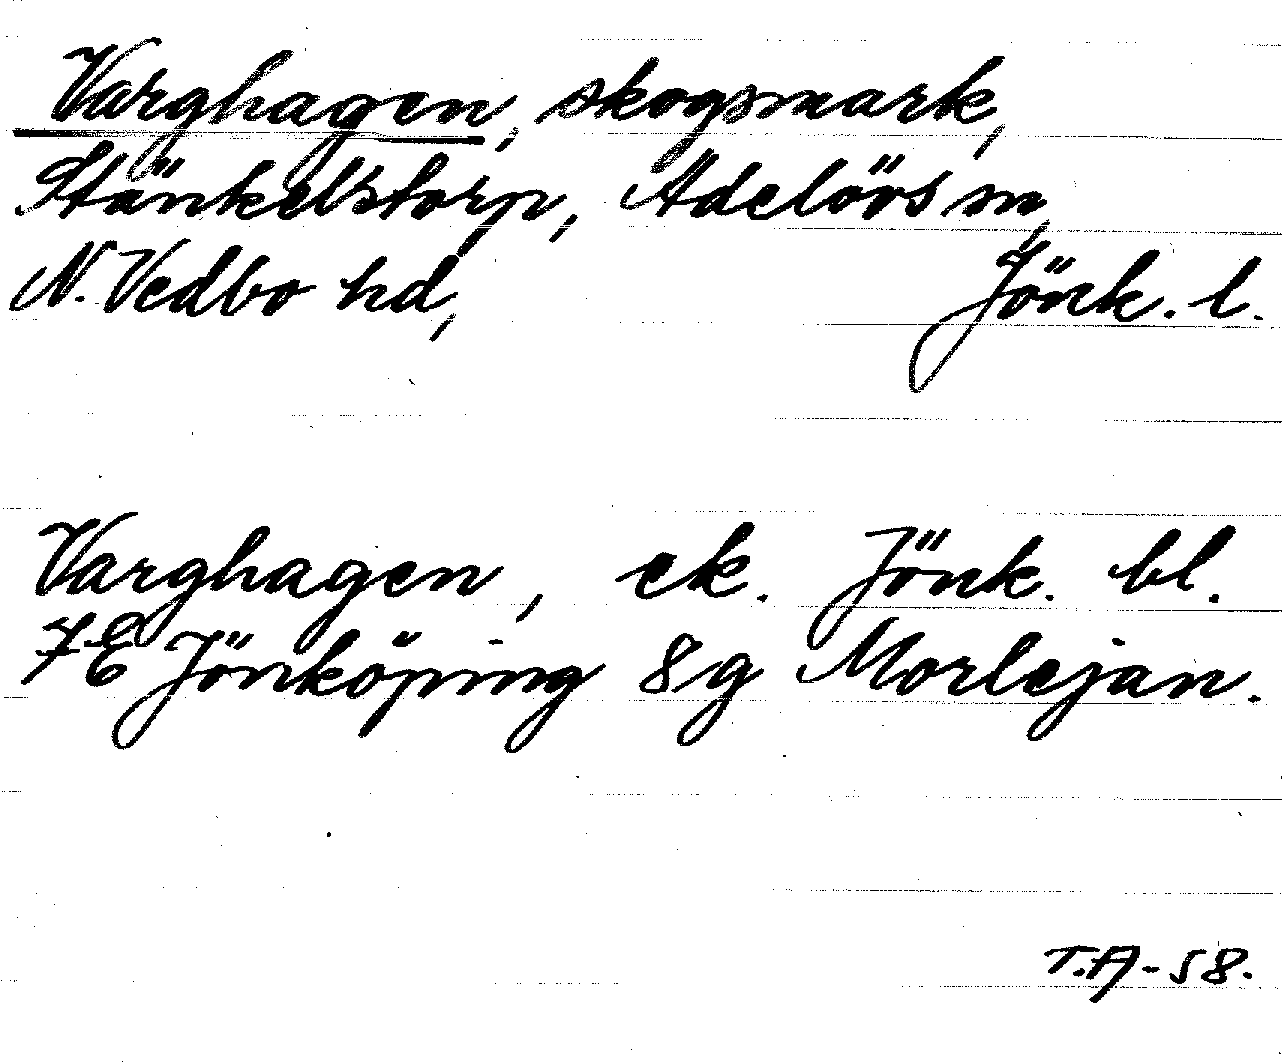 Varghagen, skogsmark,
Stänkelstorp, Adelövs sn,
N. Vedbo hd, Jönk. l.
Varghagen, ek. Jönk. bl.
7E Jönköping 8g Morlejan.
T.A-58.